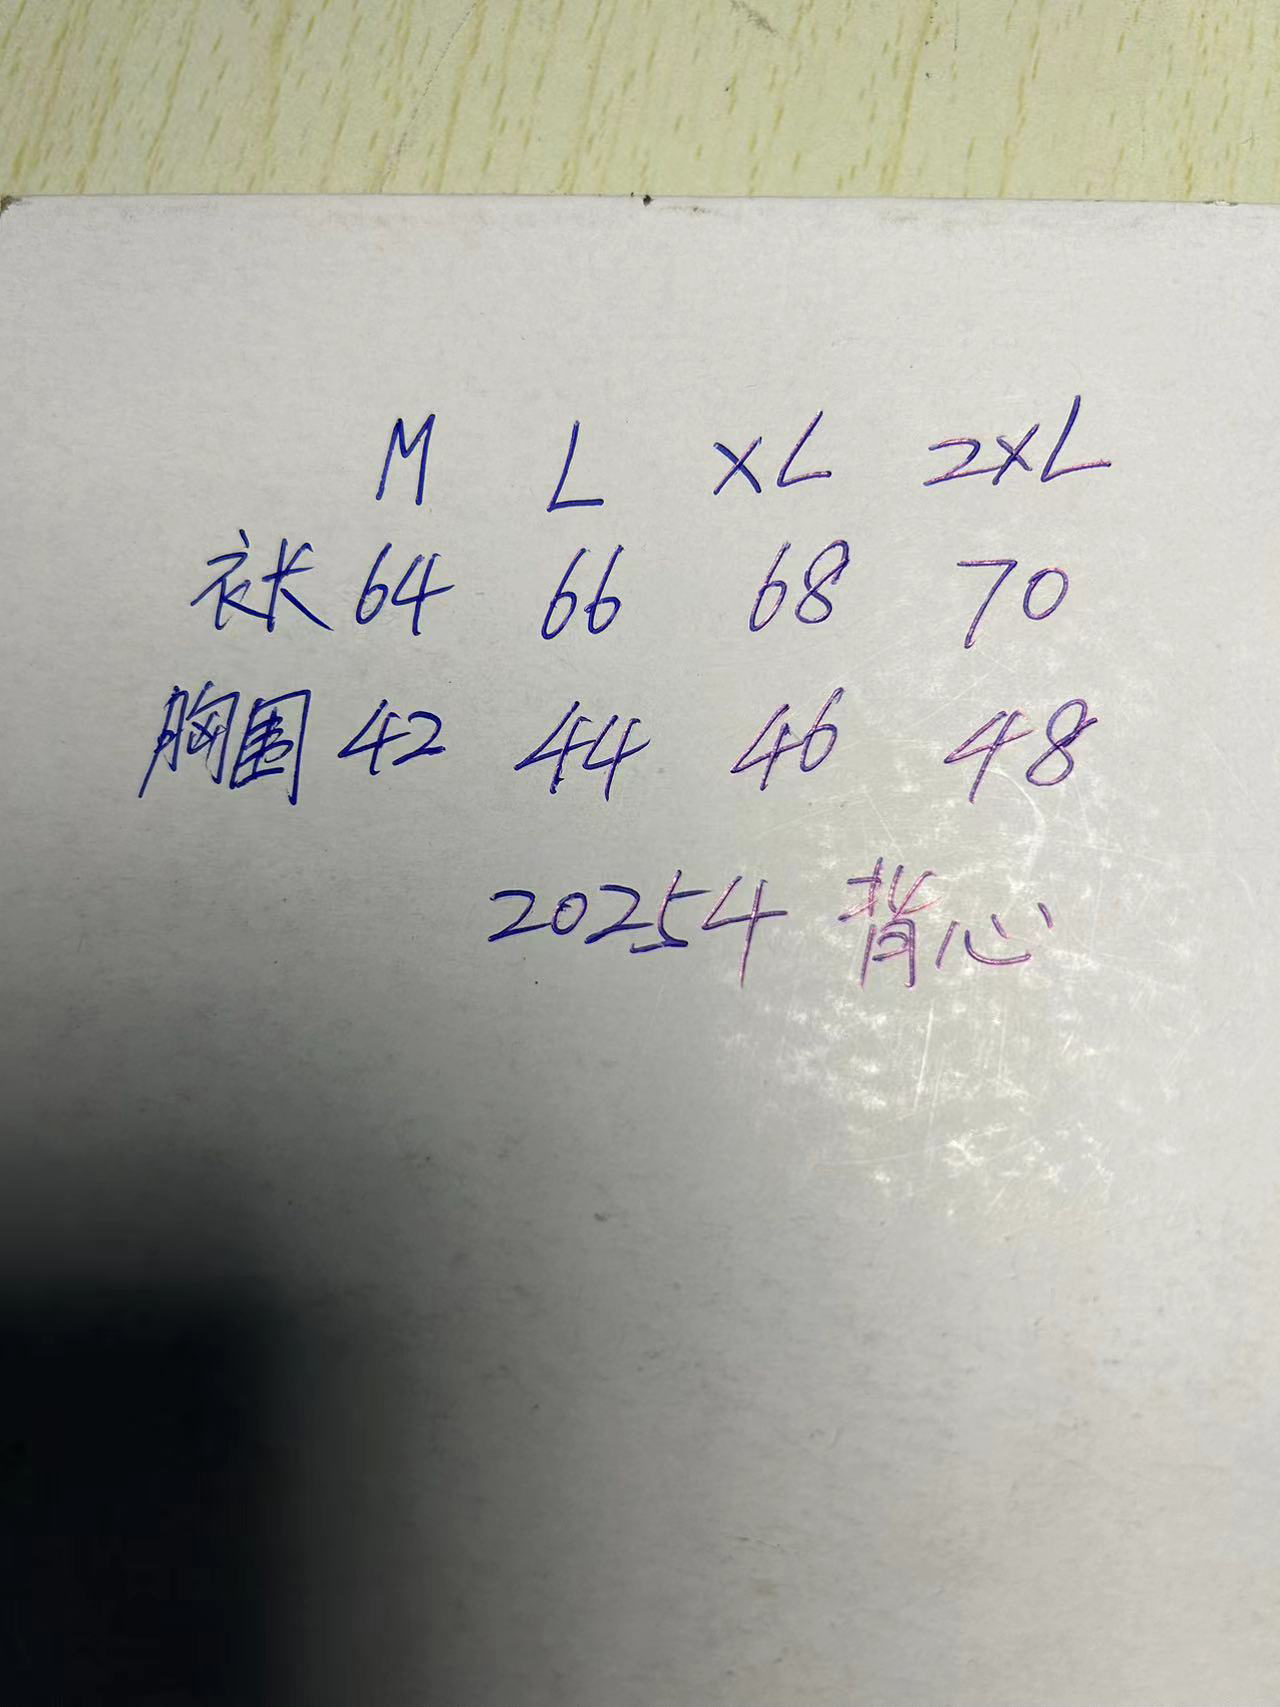 M L XL 2XL
衣长 64 66 68 70
胸围 42 44 46 48
20254 背心